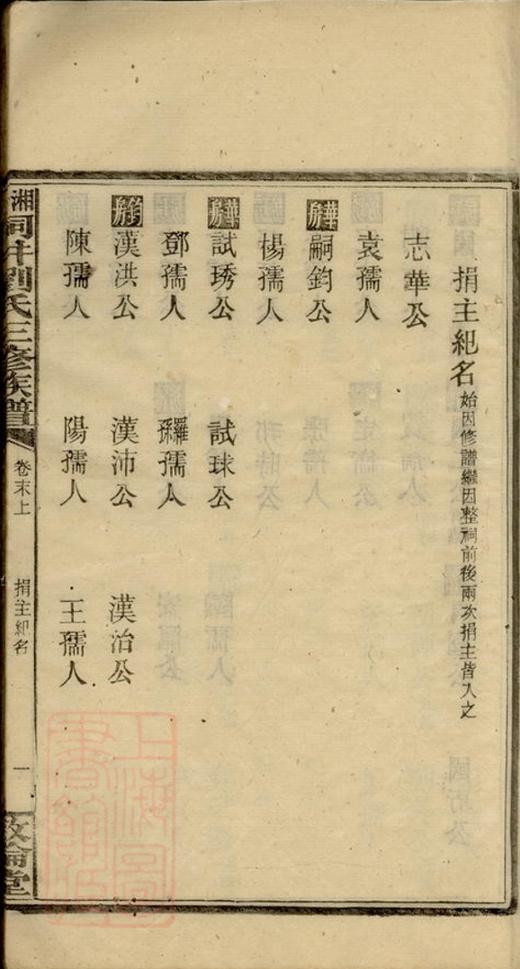 捐主紀名始因修譜繼因整祠前後兩次捐主皆入之
志華公
袁孺人
華房嗣鈞公
楊孺人
華房試琇公 試球公
鄧孺人 羅孫孺人
鈞房漢洪公 漢沛公 漢治公
陳孺人 陽孺人 王孺人
湘 劉氏三修族譜 卷末上 捐主紀名 一 敦倫堂
上海圖書館藏